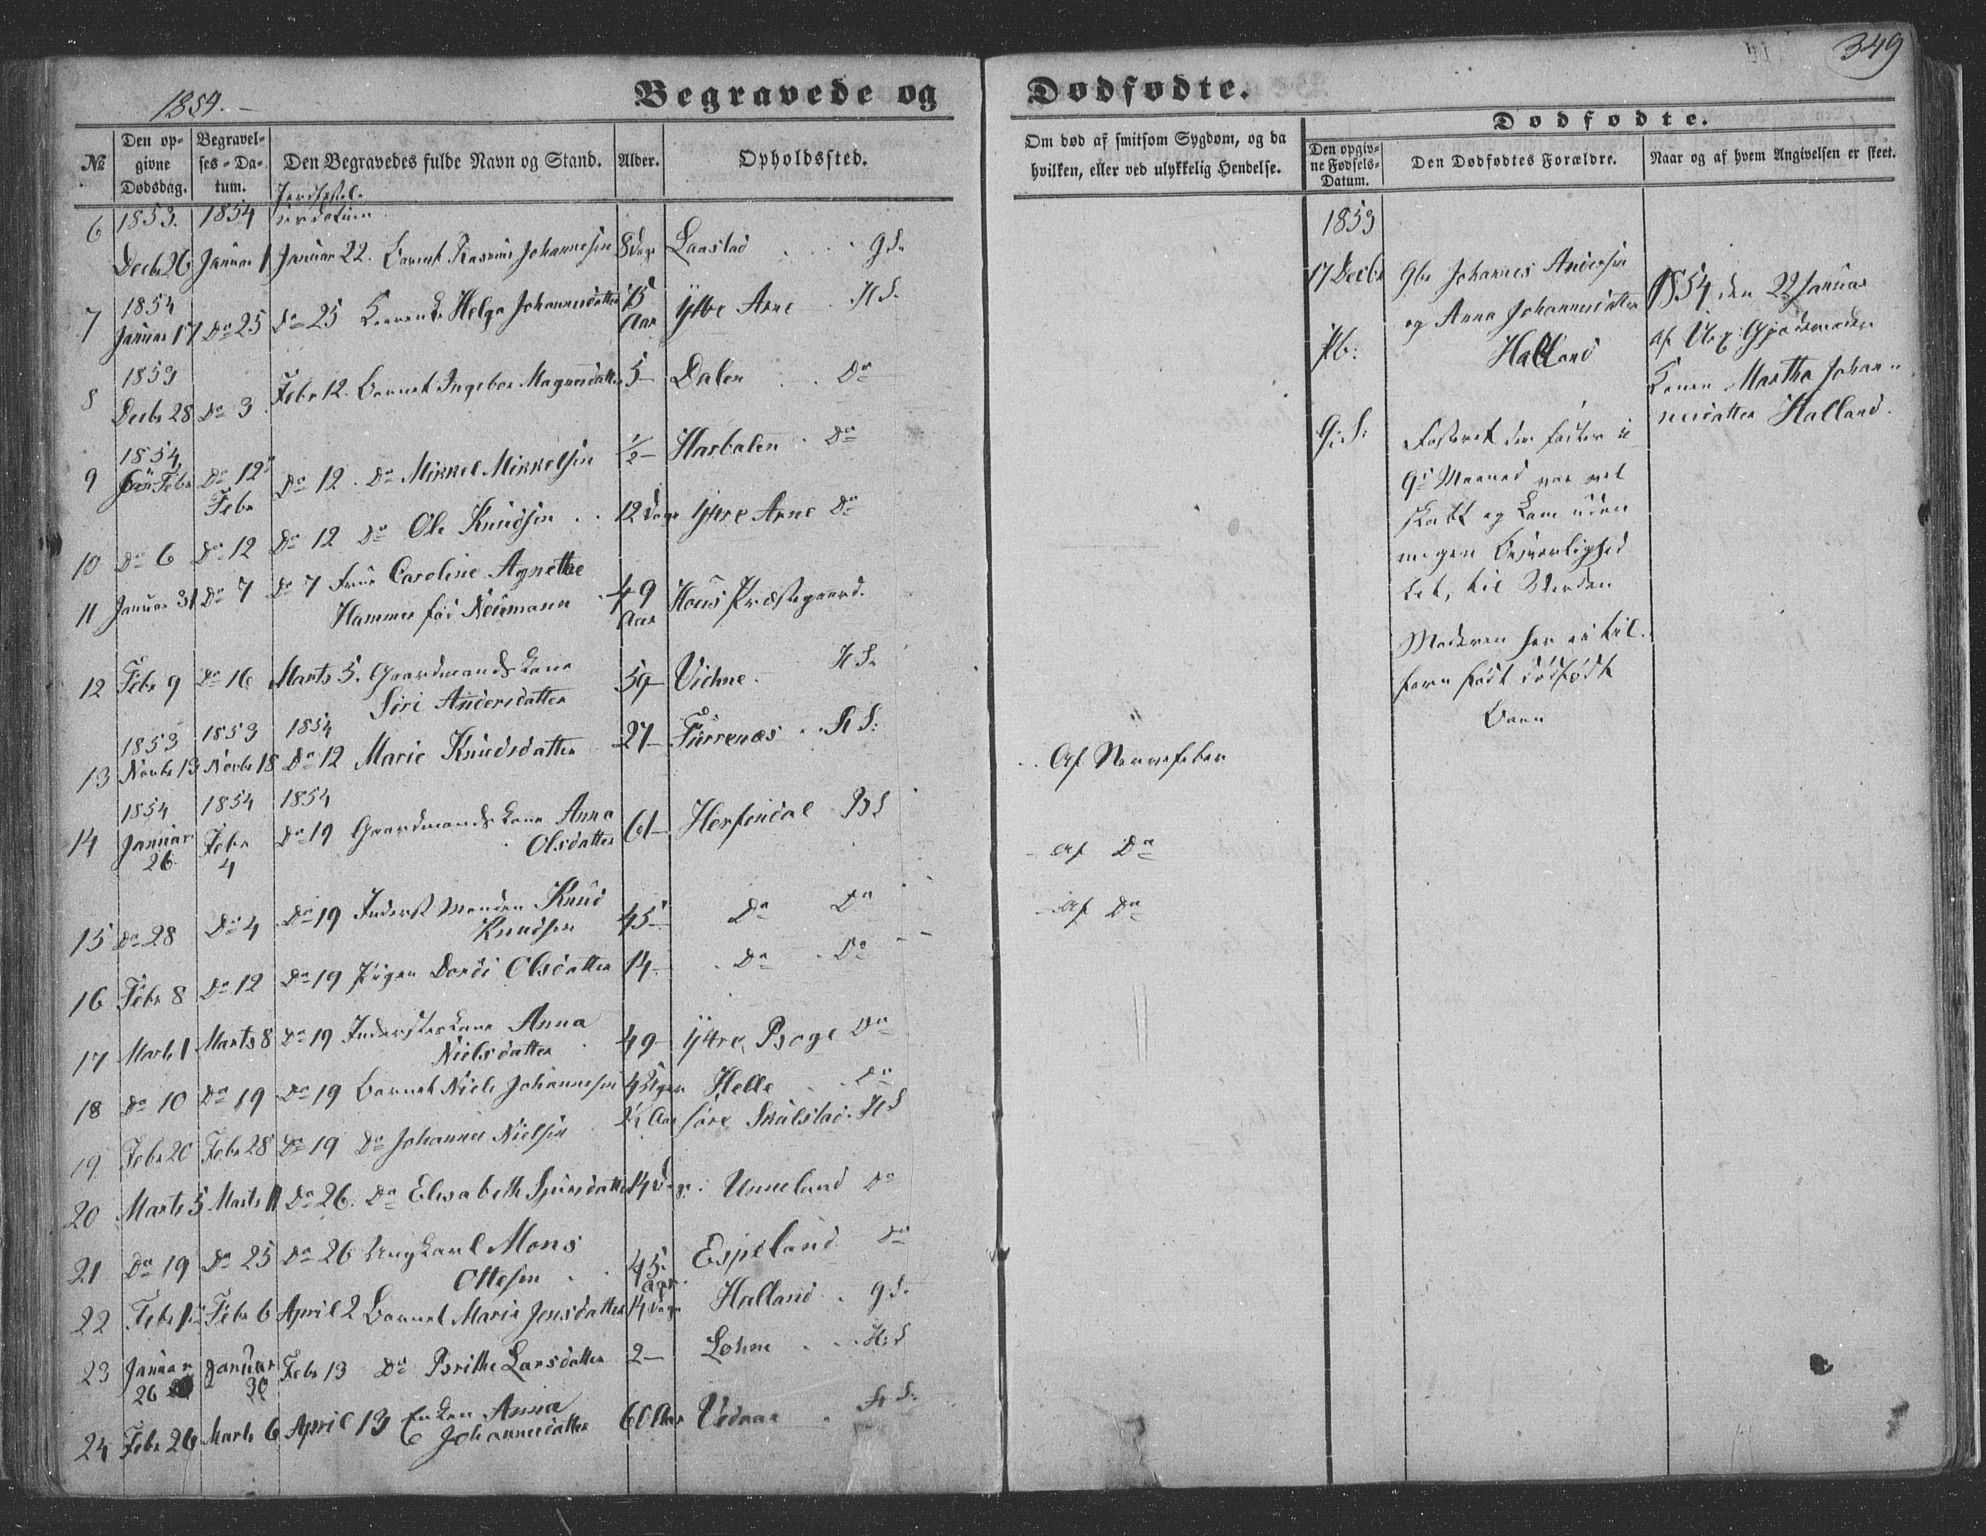 349
1854. –
Begravede og Dødfødte.
Dødfødte.
№
Den opgivne Dødsdag.
Begravelses-Datum.
Den Begravedes fulde Navn og Stand.
Alder.
Opholdssted.
Om død af smitsom Sygdom, og da hvilken, eller ved ulykkelig Hendelse.
Den opgivne Fødsels-Datum.
Den Dødfødtes Forældre.
Naar og af hvem Angivelsen er skeet.
6 1853. 1854
Decbr 26 Januar 1 Januar 22. Barnet Rasmus Johannesen 8 Dage Laastad G S.
7 1854
Januar 17 Do 25 Do 25 Helga Johannesdatter 75 Aar Ytre Arne H S.
8 1853
Decbr 28 Do 3 Febr 12. Barnet Ingebor Magnesdatter 5 – Dalen Do
9 1854
Febr Do 12 Febr Do 12. Do Mikkel Mikkelsen ½ – Harbalen Do
10 Do 6 Do 12 Do 12 Do Ole Knudsen 12 Dage Ytre Arne Do
11 Januar 31 Do 7 Do 7 Frue Caroline Agnethe
Hammer fød Neumann 49 Aar Hous Præstegaard.
12 Febr 9 Do 16 Marts 5. Gaardmands Kone
Siri Andersdatter 59 – Vidme. H S.
1853 1853 1854
13 Novbr 13 Novbr 18 Do 12 Marie Knudsdatter 27 – Furrenæs H S. Af Nervefeber
1854 1854 1854
14 Januar 26. Febr 4 Do 19 Gaardmands Kone Anna
Olsdatter 61 – Herfindal B S Af Do
15 Do 28 Do 4 Do 19 Inderst Manden Knud
Knudsen 45 – Do Do Af Do
16 Febr 8 Do 12 Do 19 Pigen Dordi Olsdatter 14 – Do Do
17 Marts 1 Marts 8 Do 19 Inderstes Kone Anna
Nielsdatter 49 – Ytre Boge Do
18 Do 10 Do 19 Do 19 Barnet Niels Johannesen 4 Uger Helle Do
19 Febr 20 Febr 28 Do 19 Do Johannes Nielsen ½ Aar Søre Skulstad H S
20 Marts 5 Marts 11 Do 26. Do Elisabeth Sjursdatter 14 Dage Unneland Do
21 Do 19 Do 25 Do 26 Ungkarl Mons
Ottesen 45 Aar. Espeland Do
22 Febr 1 Febr 6 April 2 Barnet Marie Jensdatter 14 Dage Halland G S.
23 Januar 26 Januar 30 Febr 13 Do Brithe Larsdatter 2 – Lohne H S
24 Febr 26 Marts 6 April 13 Enken Anna
Johannesdatter 60 Aar Vedaa H S.
1853
17 Decbr Gbr Johannes Andersen
og Anna Johannesdatter
Halland
G. S.
Fosteret der født i
9de Maaned var vel
skabt og kom uden
megen Besværlighed
til Verden
Moderen har ei til
forn født dødfødt
Barn
1854 den 22 Januar
af Gjordemoder
Konen Martha Johan
nesdatter Halland.